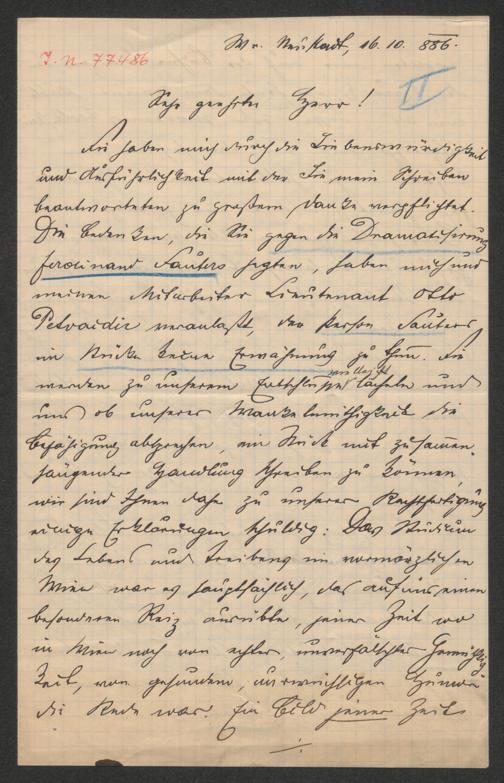 Wr. Neustadt, 16. 10. 886.
I. N. 77486
II
Sehr geehrter Herr!
Sie haben mich durch die Liebenswürdigkeit
und Ausführlichkeit mit der Sie mein Schreiben
beantworteten zu großem Danke verpflichtet.
Die Bedenken, die Sie gegen die Dramatisirung
Ferdinand Sauters hegten, haben mich und
meinen Mitarbeiter Lieutenant Otto
veranlaßt, der Person Sauters
im Stücke keine Erwähnung zu thun. Sie
werden zu unserem Entschlusse lächeln und
uns ob unserer Wankelmüthigkeit die
Befähigung absprechen, ein Stück mit zusammen-
hängender Handlung schreiben zu können,
wir sind Ihnen daher zu unserer Rechtfertigung
einige Erklärungen schuldig: Das Studium
des Lebens und Treibens im vormärzlichen
Wien war es hauptsächlich, das auf uns einen
besonderen Reiz ausübte, jener Zeit wo
in Wien noch von echter, unverfälschter Gemüthlig-
keit, von gesundem, urwüchsigen Humor
die Rede war. Ein Bild jener Zeit
./.